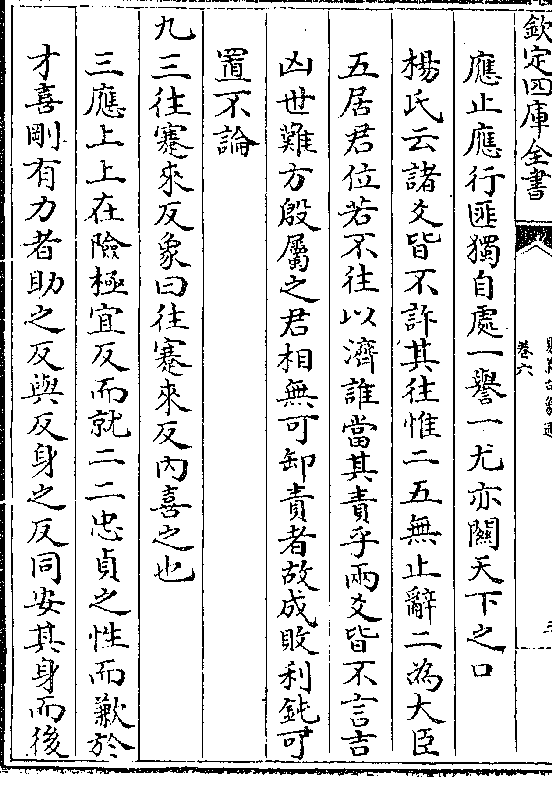 欽定四庫全書
卷六
應止應行匪獨自處一譽一尤亦關天下之口
楊氏云諸爻皆不許其往惟二五無止辭二為大臣
五居君位若不往以濟誰當其責乎兩爻皆不言吉
凶世難方殷屬之君相無可卸責者故成敗利鈍可
置不論
九三往蹇來反象曰往蹇來反內喜之也
三應上上在險極宜反而就二二忠貞之性而歉於
才喜剛有力者助之反與反身之反同安其身而後